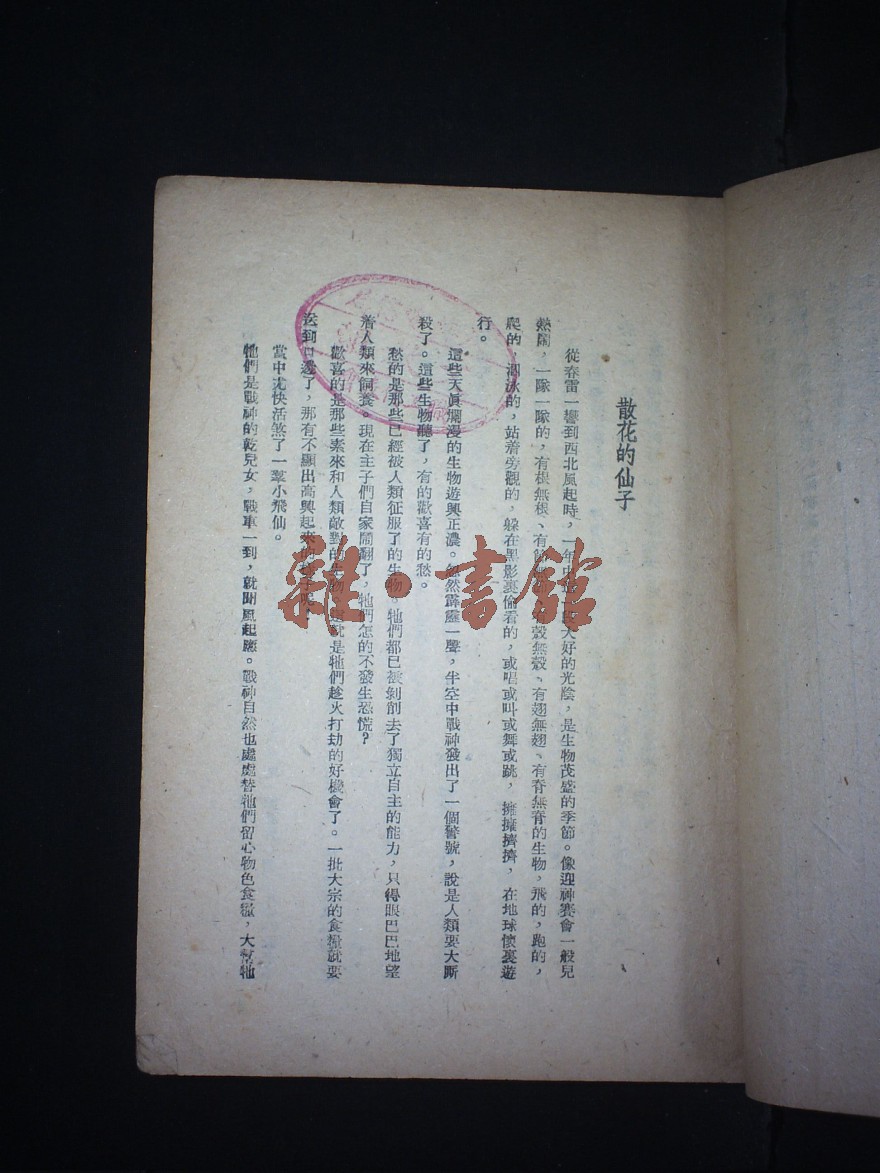 散花的仙子
從春雷一響到西北風起時，一年中大好的光陰，是生物茂盛的季節。像迎神賽會一般兒
熱鬧，一隊一隊的，有根無根、有節有殼無殼、有翅無翅、有脊無脊的生物，飛的，跑的，
爬的，游泳的，站着旁觀的，躲在黑影裏偷看的，或唱或叫或舞或跳，擁擁擠擠，在地球懷裏遊
行。
這些天眞爛漫的生物遊興正濃。忽然霹靂一聲，半空中戰神發出了一個警號，說是人類要大廝
殺了。這些生物聽了，有的歡喜有的愁。
愁的是那些已經被人類征服了的生物。牠們都已被剝削去了獨立自主的能力，只得眼巴巴地望
着人類來飼養。現在主子們自家鬧翻了，牠們怎的不發生恐慌？
歡喜的是那些素來和人類敵對的生物。就是牠們趁火打劫的好機會了。一批大宗的食糧就要
送到口邊了，那有不顯出高興起來的
當中尤快活煞了一羣小飛仙。
牠們是戰神的乾兒女，戰車一到，就聞風起舞。戰神自然也處處替牠們留心物色食糧，大幫牠
雜·書館